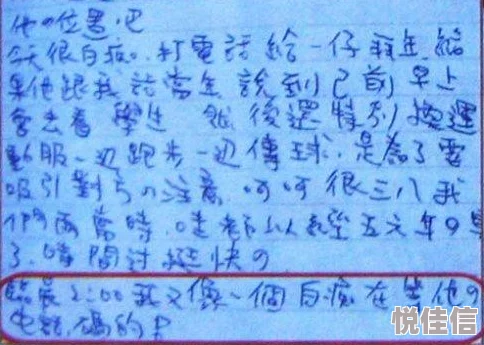 他の位置吧
今天很白痴。打電話給一仔 結
果他跟我 當年 說到已前早上
會去看學生 然後還特別換運
動服一边跑步一边傳球.是為了要
吸引對方の注意.呵呵很三八我
們兩當時.哇都 五六年の事
了.時間过挺快の
臨晨2:00我又像一個白痴在等他の
电話.媽的
悦佳信